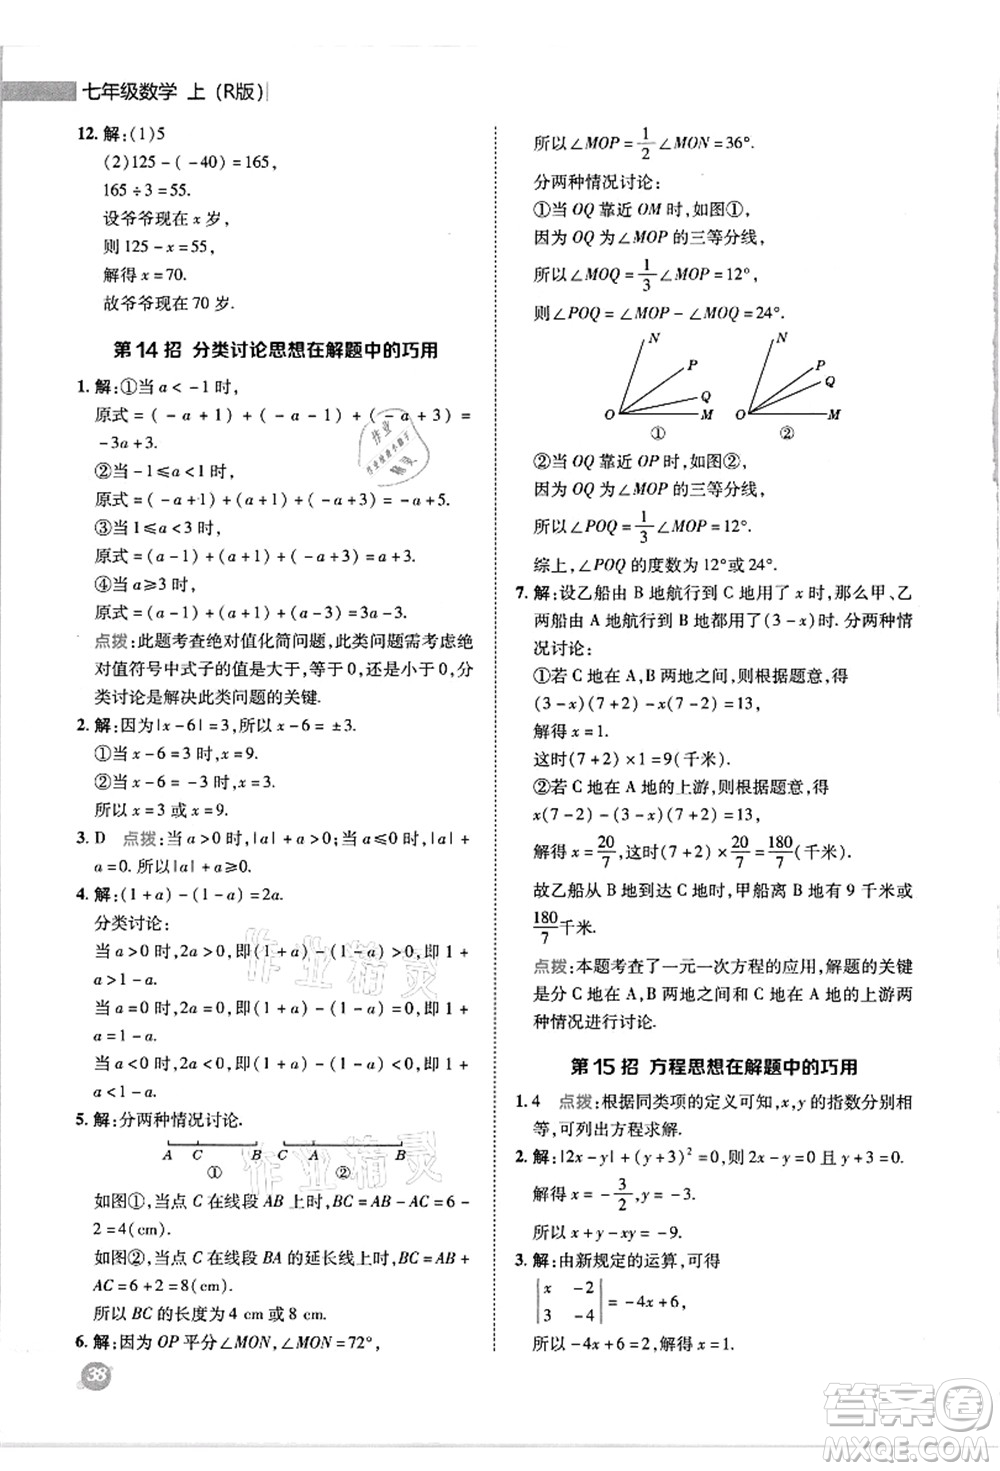 七年级数学 上(R版)
12. 解:(1)5
(2)125-(-40)=165,
165÷3=55.
设爷爷现在 x 岁,
则 125-x=55,
解得 x=70.
故爷爷现在 70 岁.
第 14 招 分类讨论思想在解题中的巧用
1. 解:①当 a<-1 时,
原式=(-a+1)+(-a-1)+(-a+3)=
-3a+3.
②当-1≤a<1 时,
原式=(-a+1)+(a+1)+(-a+3)=-a+5.
③当 1≤a<3 时,
原式=(a-1)+(a+1)+(-a+3)=a+3.
④当 a≥3 时,
原式=(a-1)+(a+1)+(a-3)=3a-3.
点拨:此题考查绝对值化简问题,此类问题需考虑绝
对值符号中式子的值是大于,等于 0,还是小于 0,分
类讨论是解决此类问题的关键.
2. 解:因为|x-6|=3,所以 x-6=±3.
①当 x-6=3 时,x=9.
②当 x-6=-3 时,x=3.
所以 x=3 或 x=9.
3. D 点拨:当 a>0 时,|a|+a>0;当 a≤0 时,|a|+
a=0. 所以|a|+a≥0.
4. 解:(1+a)-(1-a)=2a.
分类讨论:
当 a>0 时,2a>0,即(1+a)-(1-a)>0,即 1+
a>1-a.
当 a=0 时,2a=0,即(1+a)-(1-a)=0,即 1+
a=1-a.
当 a<0 时,2a<0,即(1+a)-(1-a)<0,即 1+
a<1-a.
5. 解:分两种情况讨论.
A C B C A B
① ②
如图①,当点 C 在线段 AB 上时,BC=AB-AC=6-
2=4(cm).
如图②,当点 C 在线段 BA 的延长线上时,BC=AB+
AC=6+2=8(cm).
所以 BC 的长度为 4 cm 或 8 cm.
6. 解:因为 OP 平分∠MON,∠MON=72°,
38
所以∠MOP=1/2∠MON=36°.
分两种情况讨论:
①当 OQ 靠近 OM 时,如图①,
因为 OQ 为∠MOP 的三等分线,
所以∠MOQ=1/3∠MOP=12°,
则∠POQ=∠MOP-∠MOQ=24°.
N P Q O M N P Q O M
① ②
②当 OQ 靠近 OP 时,如图②,
因为 OQ 为∠MOP 的三等分线,
所以∠POQ=1/3∠MOP=12°.
综上,∠POQ 的度数为 12°或 24°.
7. 解:设乙船由 B 地航行到 C 地用了 x 时,那么甲、乙
两船由 A 地航行到 B 地都用了(3-x)时. 分两种情
况讨论:
①若 C 地在 A,B 两地之间,则根据题意,得
(3-x)(7+2)-x(7-2)=13,
解得 x=1.
这时(7+2)×1=9(千米).
②若 C 地在 A 地的上游,则根据题意,得
x(7-2)-(3-x)(7+2)=13,
解得 x=20/7,这时(7+2)×20/7=180/7(千米).
故乙船从 B 地到达 C 地时,甲船离 B 地有 9 千米或
180/7千米.
点拨:本题考查了一元一次方程的应用,解题的关键
是分 C 地在 A,B 两地之间和 C 地在 A 地的上游两
种情况进行讨论.
第 15 招 方程思想在解题中的巧用
1. 4 点拨:根据同类项的定义可知,x,y 的指数分别相
等,可列出方程求解.
2. 解:|2x-y|+(y+3)²=0,则 2x-y=0,y+3=0.
解得 x=-3/2,y=-3.
所以 x+y-xy=-9.
3. 解:由新规定的运算,可得
|x -2|
|3 -4|=-4x+6,
所以-4x+6=2,解得 x=1.
作业精灵
作业精灵
答案圈
MXQE.COM